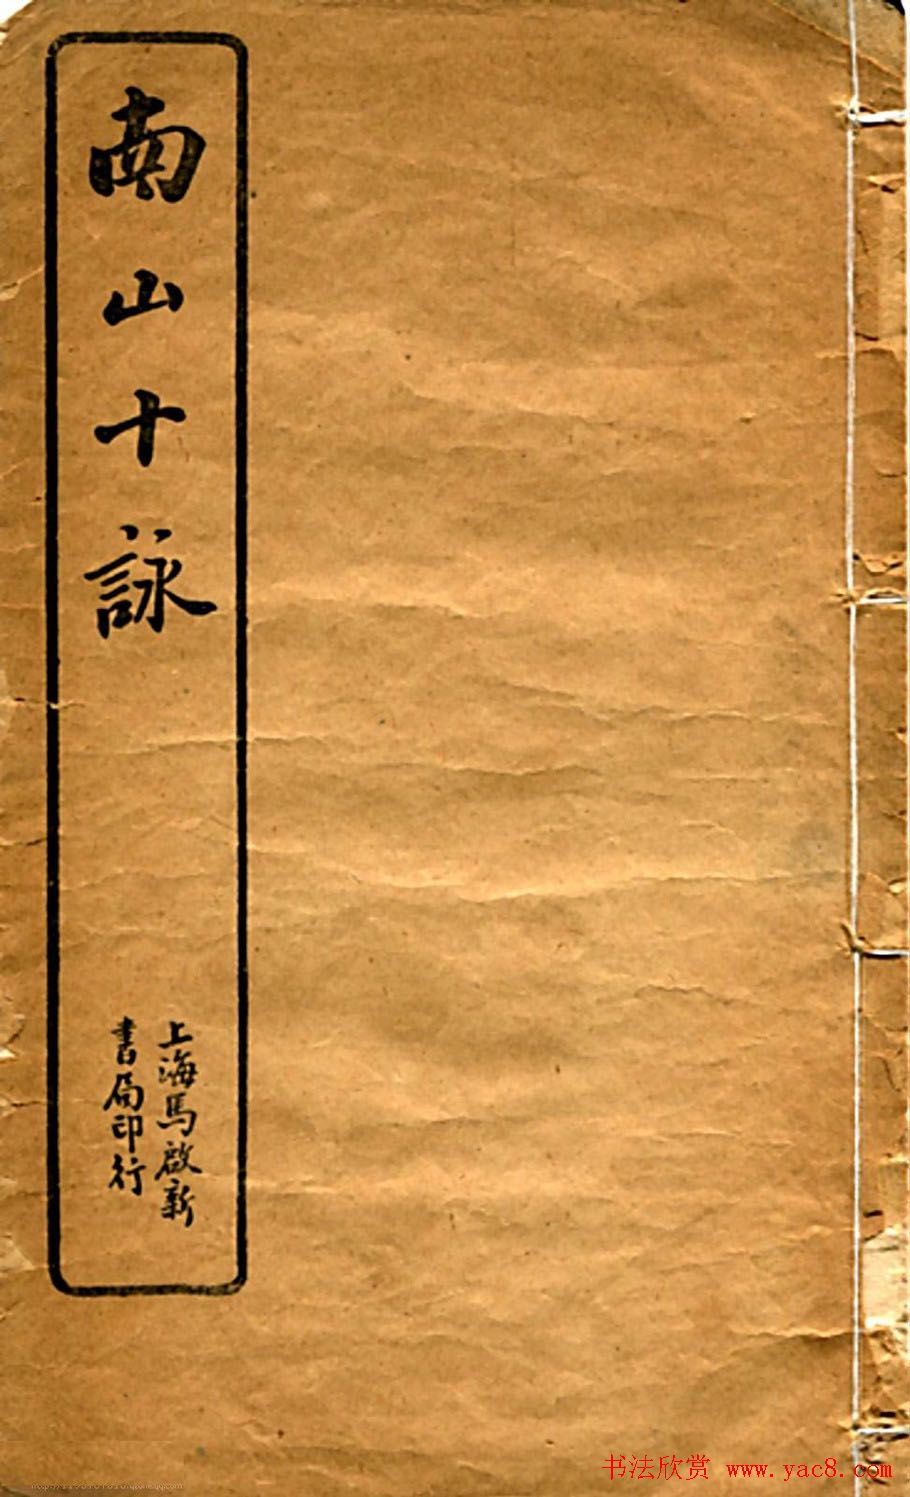 南山十詠
上海馬啟新
書局印行
书法欣赏 www.yac8.com